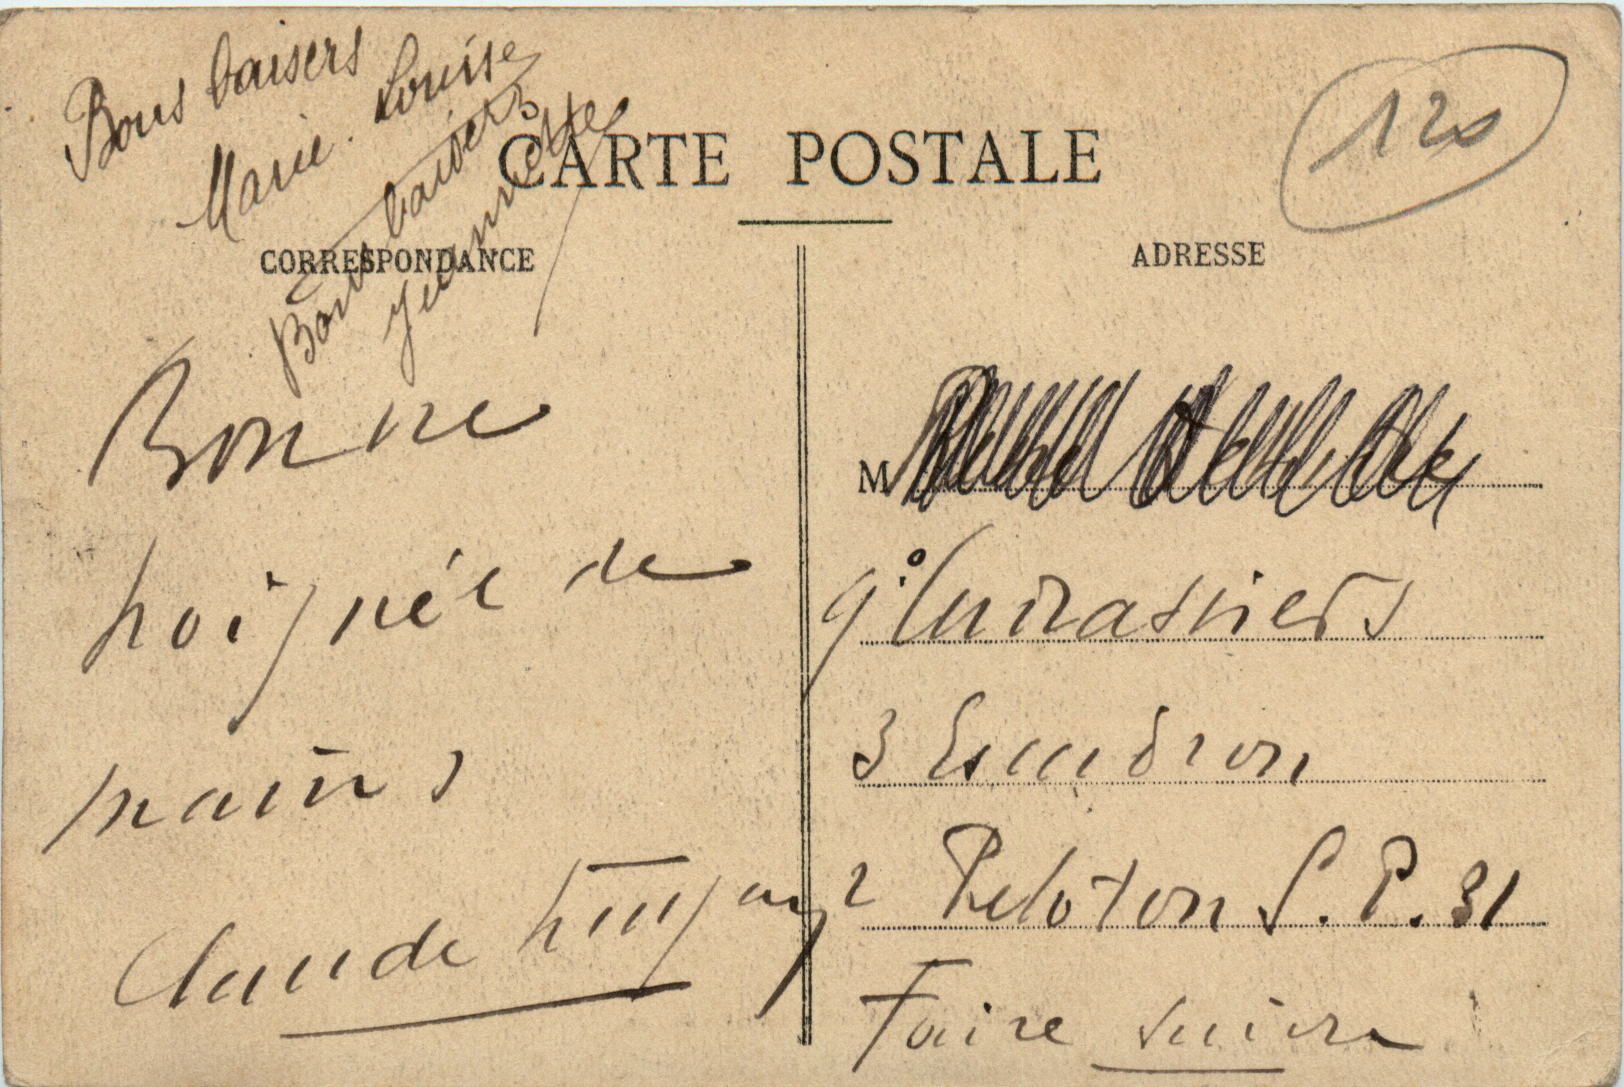 Bons baisers
Marie-Louise
Bons baisers
Jeannette
120
CARTE POSTALE
CORRESPONDANCE
ADRESSE
Bonne
poignée de
mains
Claude
M
9° Cuirassiers
3 Escadron
2 Peloton S.P. 31
Faire suivre